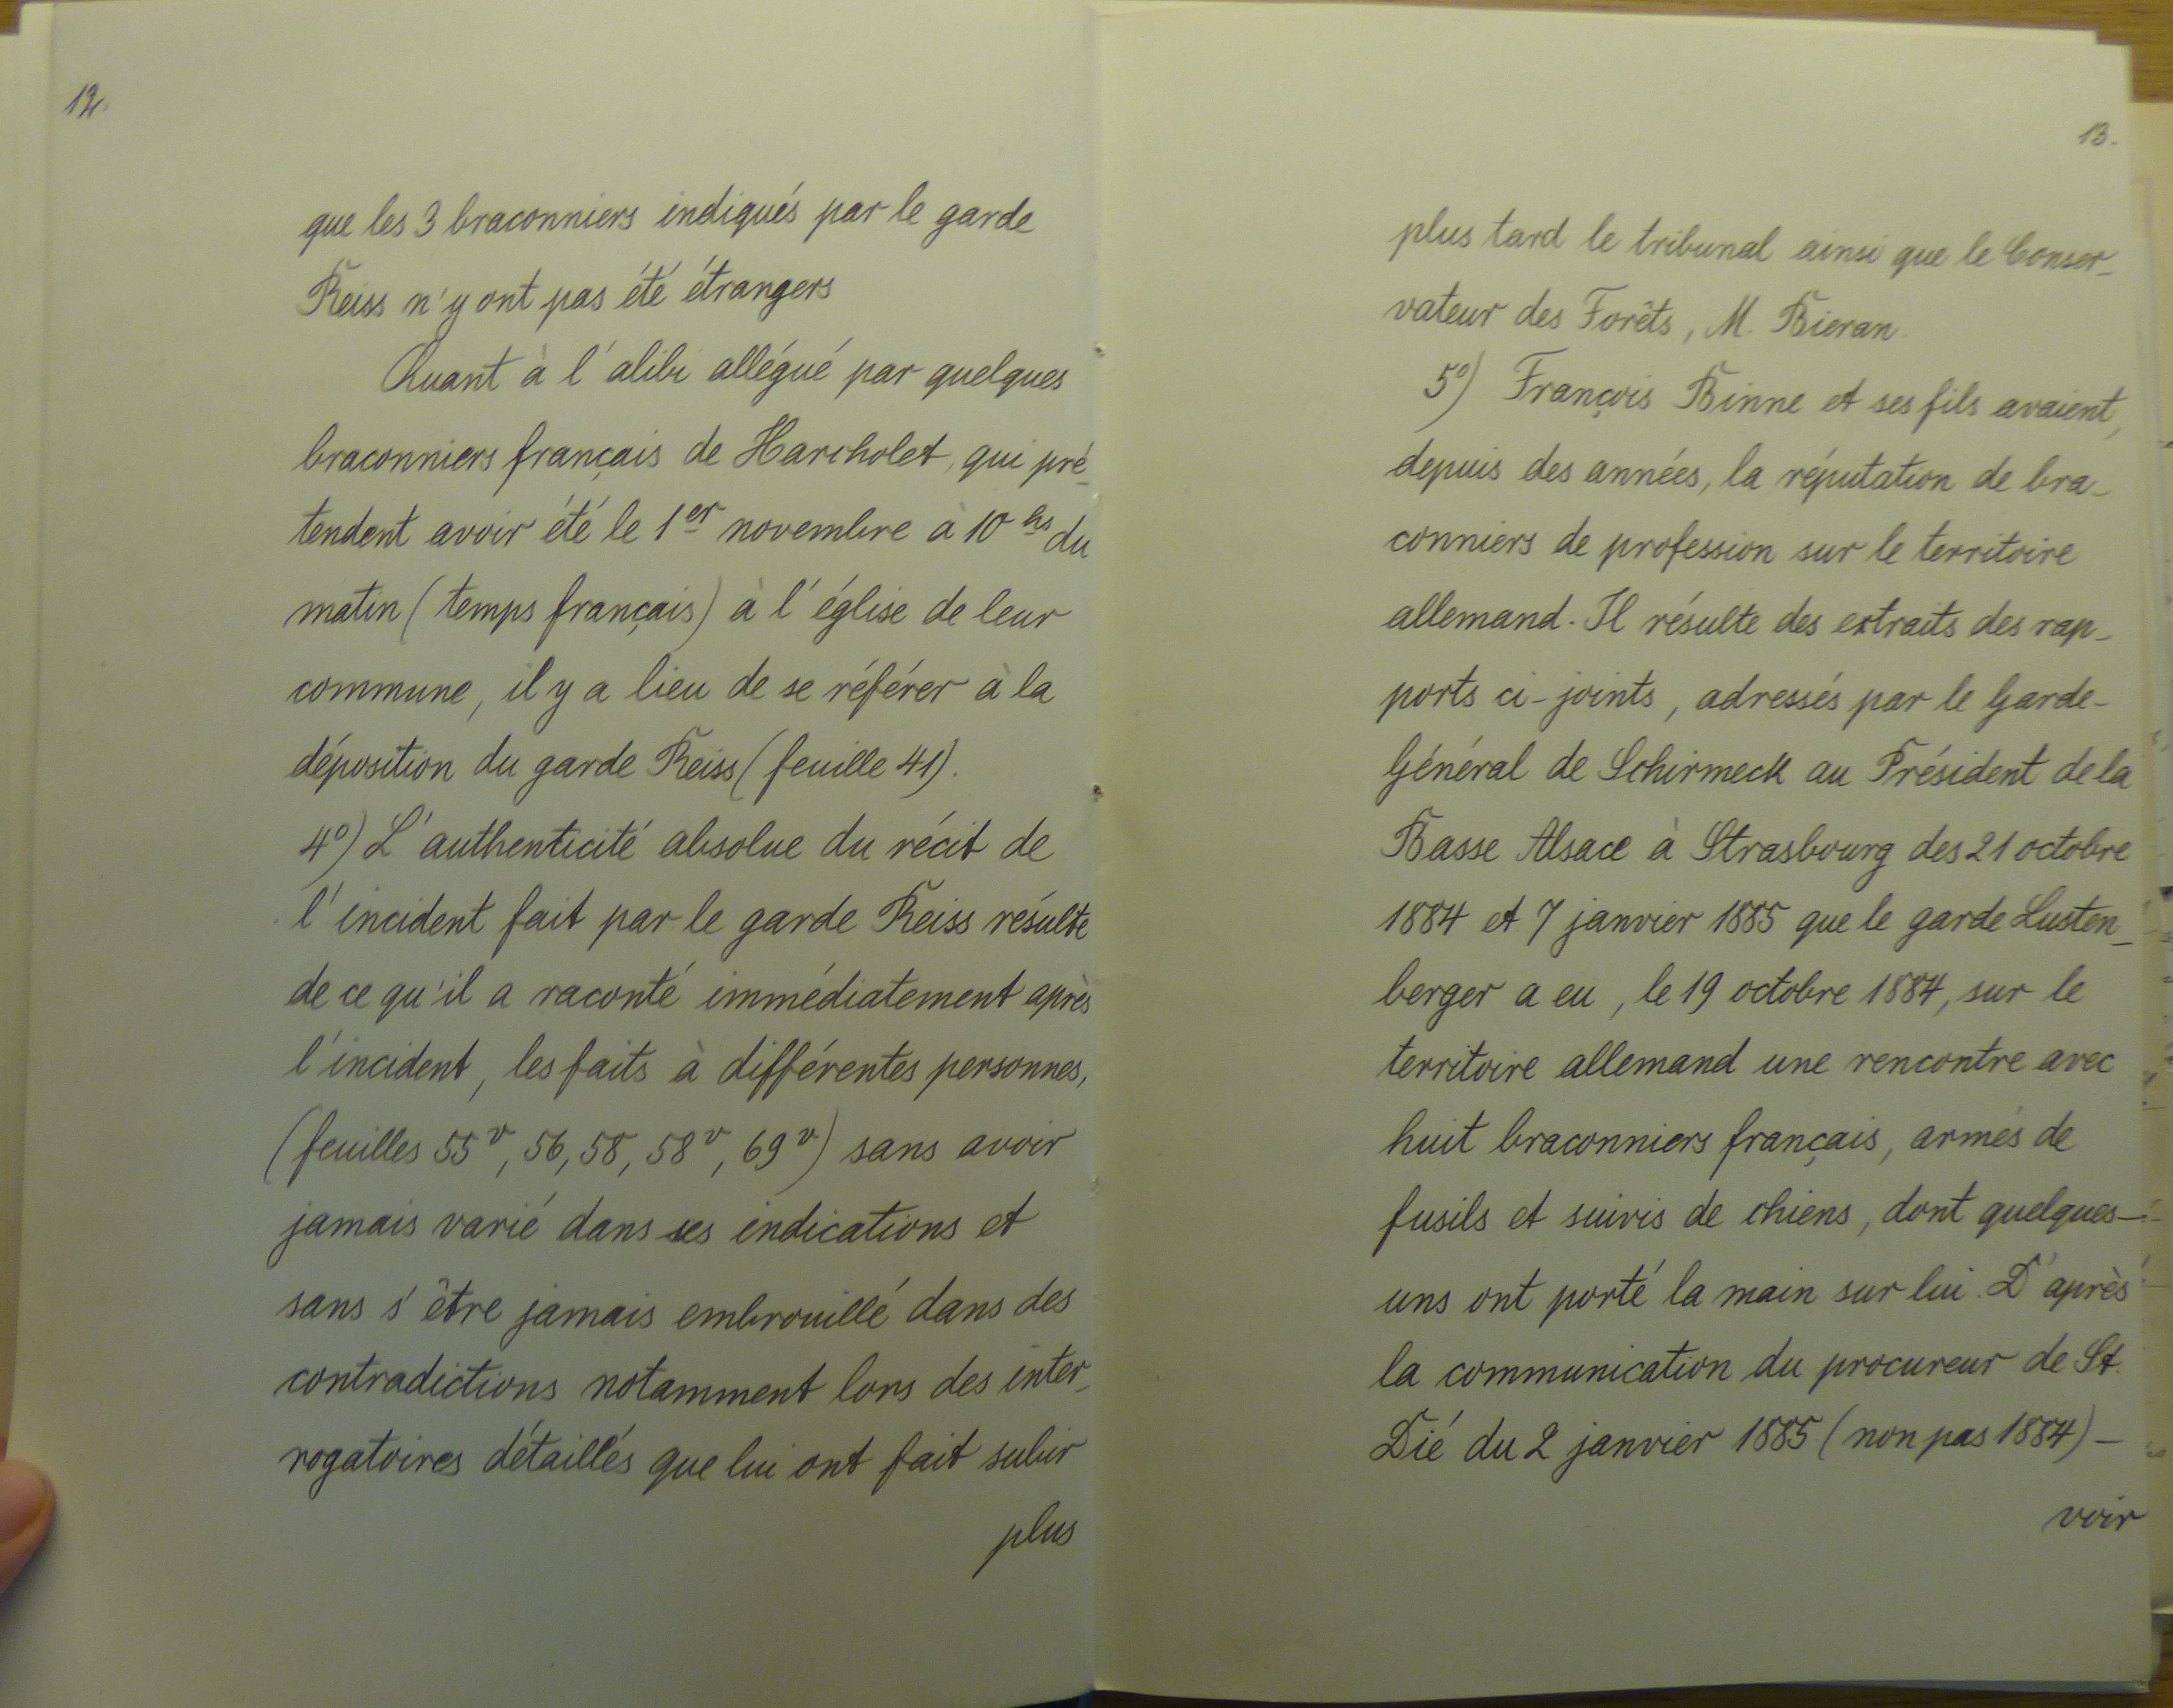 12.
que les 3 braconniers indiqués par le garde
Reiss n'y ont pas été étrangers
Quant à l'alibi allégué par quelques
braconniers français de Harcholet, qui pré_
tendent avoir été le 1er novembre à 10 hs du
matin (temps français) à l'église de leur
commune, il y a lieu de se référer à la
déposition du garde Reiss (feuille 41).
4°) L'authenticité absolue du récit de
l'incident fait par le garde Reiss résulte
de ce qu'il a raconté immédiatement après
l'incident, les faits à différentes personnes,
(feuilles 55v, 56, 58, 58v, 69v) sans avoir
jamais varié dans ses indications et
sans s'être jamais embrouillé dans des
contradictions notamment lors des inter_
rogatoires détaillés que lui ont fait subir
plus
13.
plus tard le tribunal ainsi que le Conser_
vateur des Forêts, M. Bieran.
5°) François Binne et ses fils avaient,
depuis des années, la réputation de bra_
conniers de profession sur le territoire
allemand. Il résulte des extraits des rap_
ports ci-joints, adressés par le Garde-
Général de Schirmeck au Président de la
Basse Alsace à Strasbourg des 21 octobre
1884 et 7 janvier 1885 que le garde Lusten_
berger a eu, le 19 octobre 1884, sur le
territoire allemand une rencontre avec
huit braconniers français, armés de
fusils et suivis de chiens, dont quelques-
uns ont porté la main sur lui. D'après
la communication du procureur de St.
Dié du 2 janvier 1885 (non pas 1884) –
voir